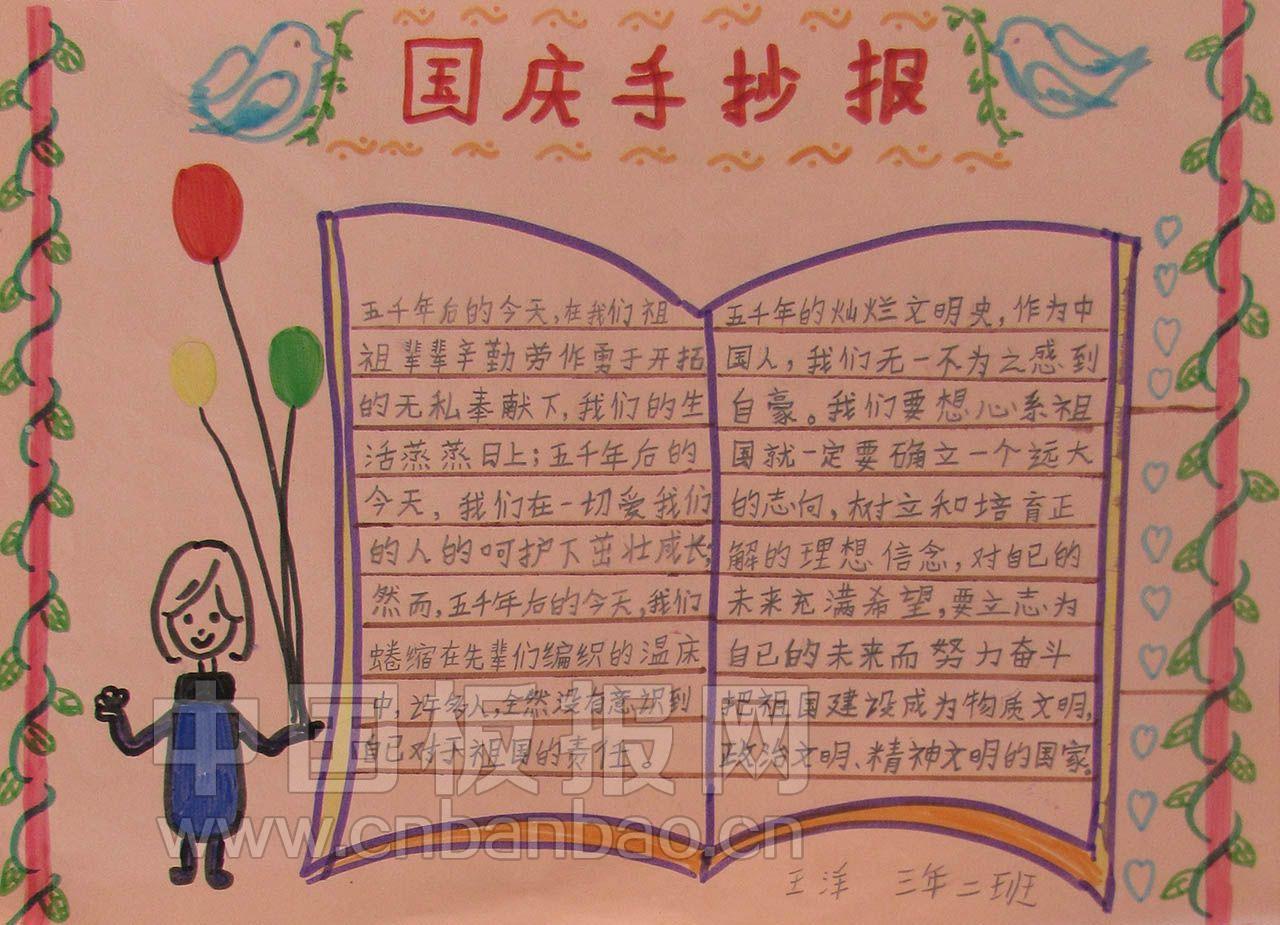 国庆手抄报
五千年后的今天,在我们祖
祖辈辈辛勤劳作勇于开拓
的无私奉献下,我们的生
活蒸蒸日上;五千年后的
今天,我们在一切爱我们
的人的呵护下茁壮成长;
然而,五千年后的今天,我们
蜷缩在先辈们编织的温床
中,许多人,全然没有意识到
自己对于祖国的责任。
五千年的灿烂文明史,作为中
国人,我们无一不为之感到
自豪。我们要想心系祖
国就一定要确立一个远大
的志向,树立和培育正
解的理想信念,对自己的
未来充满希望,要立志为
自己的未来而努力奋斗
把祖国建设成为物质文明,
政治文明、精神文明的国家。
王洋 三年二班
中国板报网
www.cnbanbao.cn